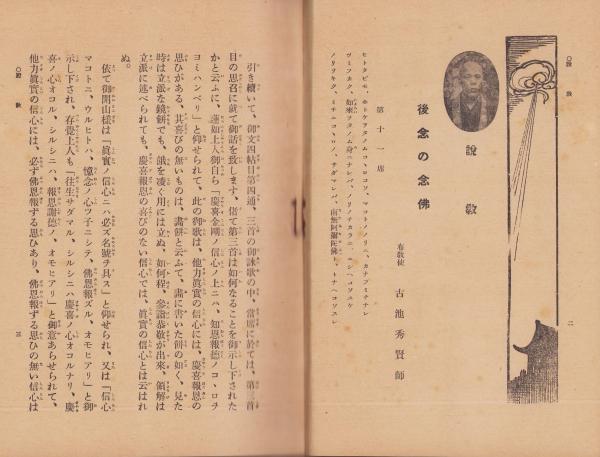 ○説教
二
説教
後念の念佛
布教使 古池秀賢師
第十一席
ヒトタビモ、ホトケヲタノムコヽロコソ、マコトノノリニ、カナフミチナレ
ツミフカク、如來ヲタノム身ニナレバ、ノリノチカラニ、西ヘコソユケ
ノリヲキク、ミチニコヽロノ、サダマレバ、南無阿彌陀佛ト、トナヘコソスレ
引き續いて、御文四帖目第四通、三首の御詠歌の中、當席に於ては、第三首
目の思召に就て御話を致します、偖て第三首は如何なることを御示し下された
かと云ふに、蓮如上人御自ら「慶喜金剛ノ信心ノ上ニハ、知恩報德ノコヽロヲ
ヨミハンベリ」と仰せられて、此の御歌は、他力眞實の信心には、慶喜報恩の
思ひがある、其喜びの無いものは、畵餅と云ふて、畵に書いた餅の如く、見た
時は立派な鏡餅でも、餓を凌ぐ用には立ぬ、如何程、參詣恭敬が出來、領解は
立派に述べられても、慶喜報恩の喜びのない信心では、眞實の信心とは云はれ
ぬ。
依て御開山樣は「眞實ノ信心ニハ必ズ名號ヲ具ス」と仰せられ、又は「信心
マコトニ、ウルヒトハ、憶念ノ心ツネニシテ、佛恩報ズル、オモヒアリ」と御
示し下され、存覺上人も「往生サダマル、シルシニハ慶喜ノ心オコルナリ、慶
喜ノ心オコル、シルシニハ、報恩謝德ノ、オモヒアリ」と御意あらせられて、
他力眞實の信心には、必ず佛恩報ずる思ひあり、佛恩報ずる思ひの無い信心は
○說教
三